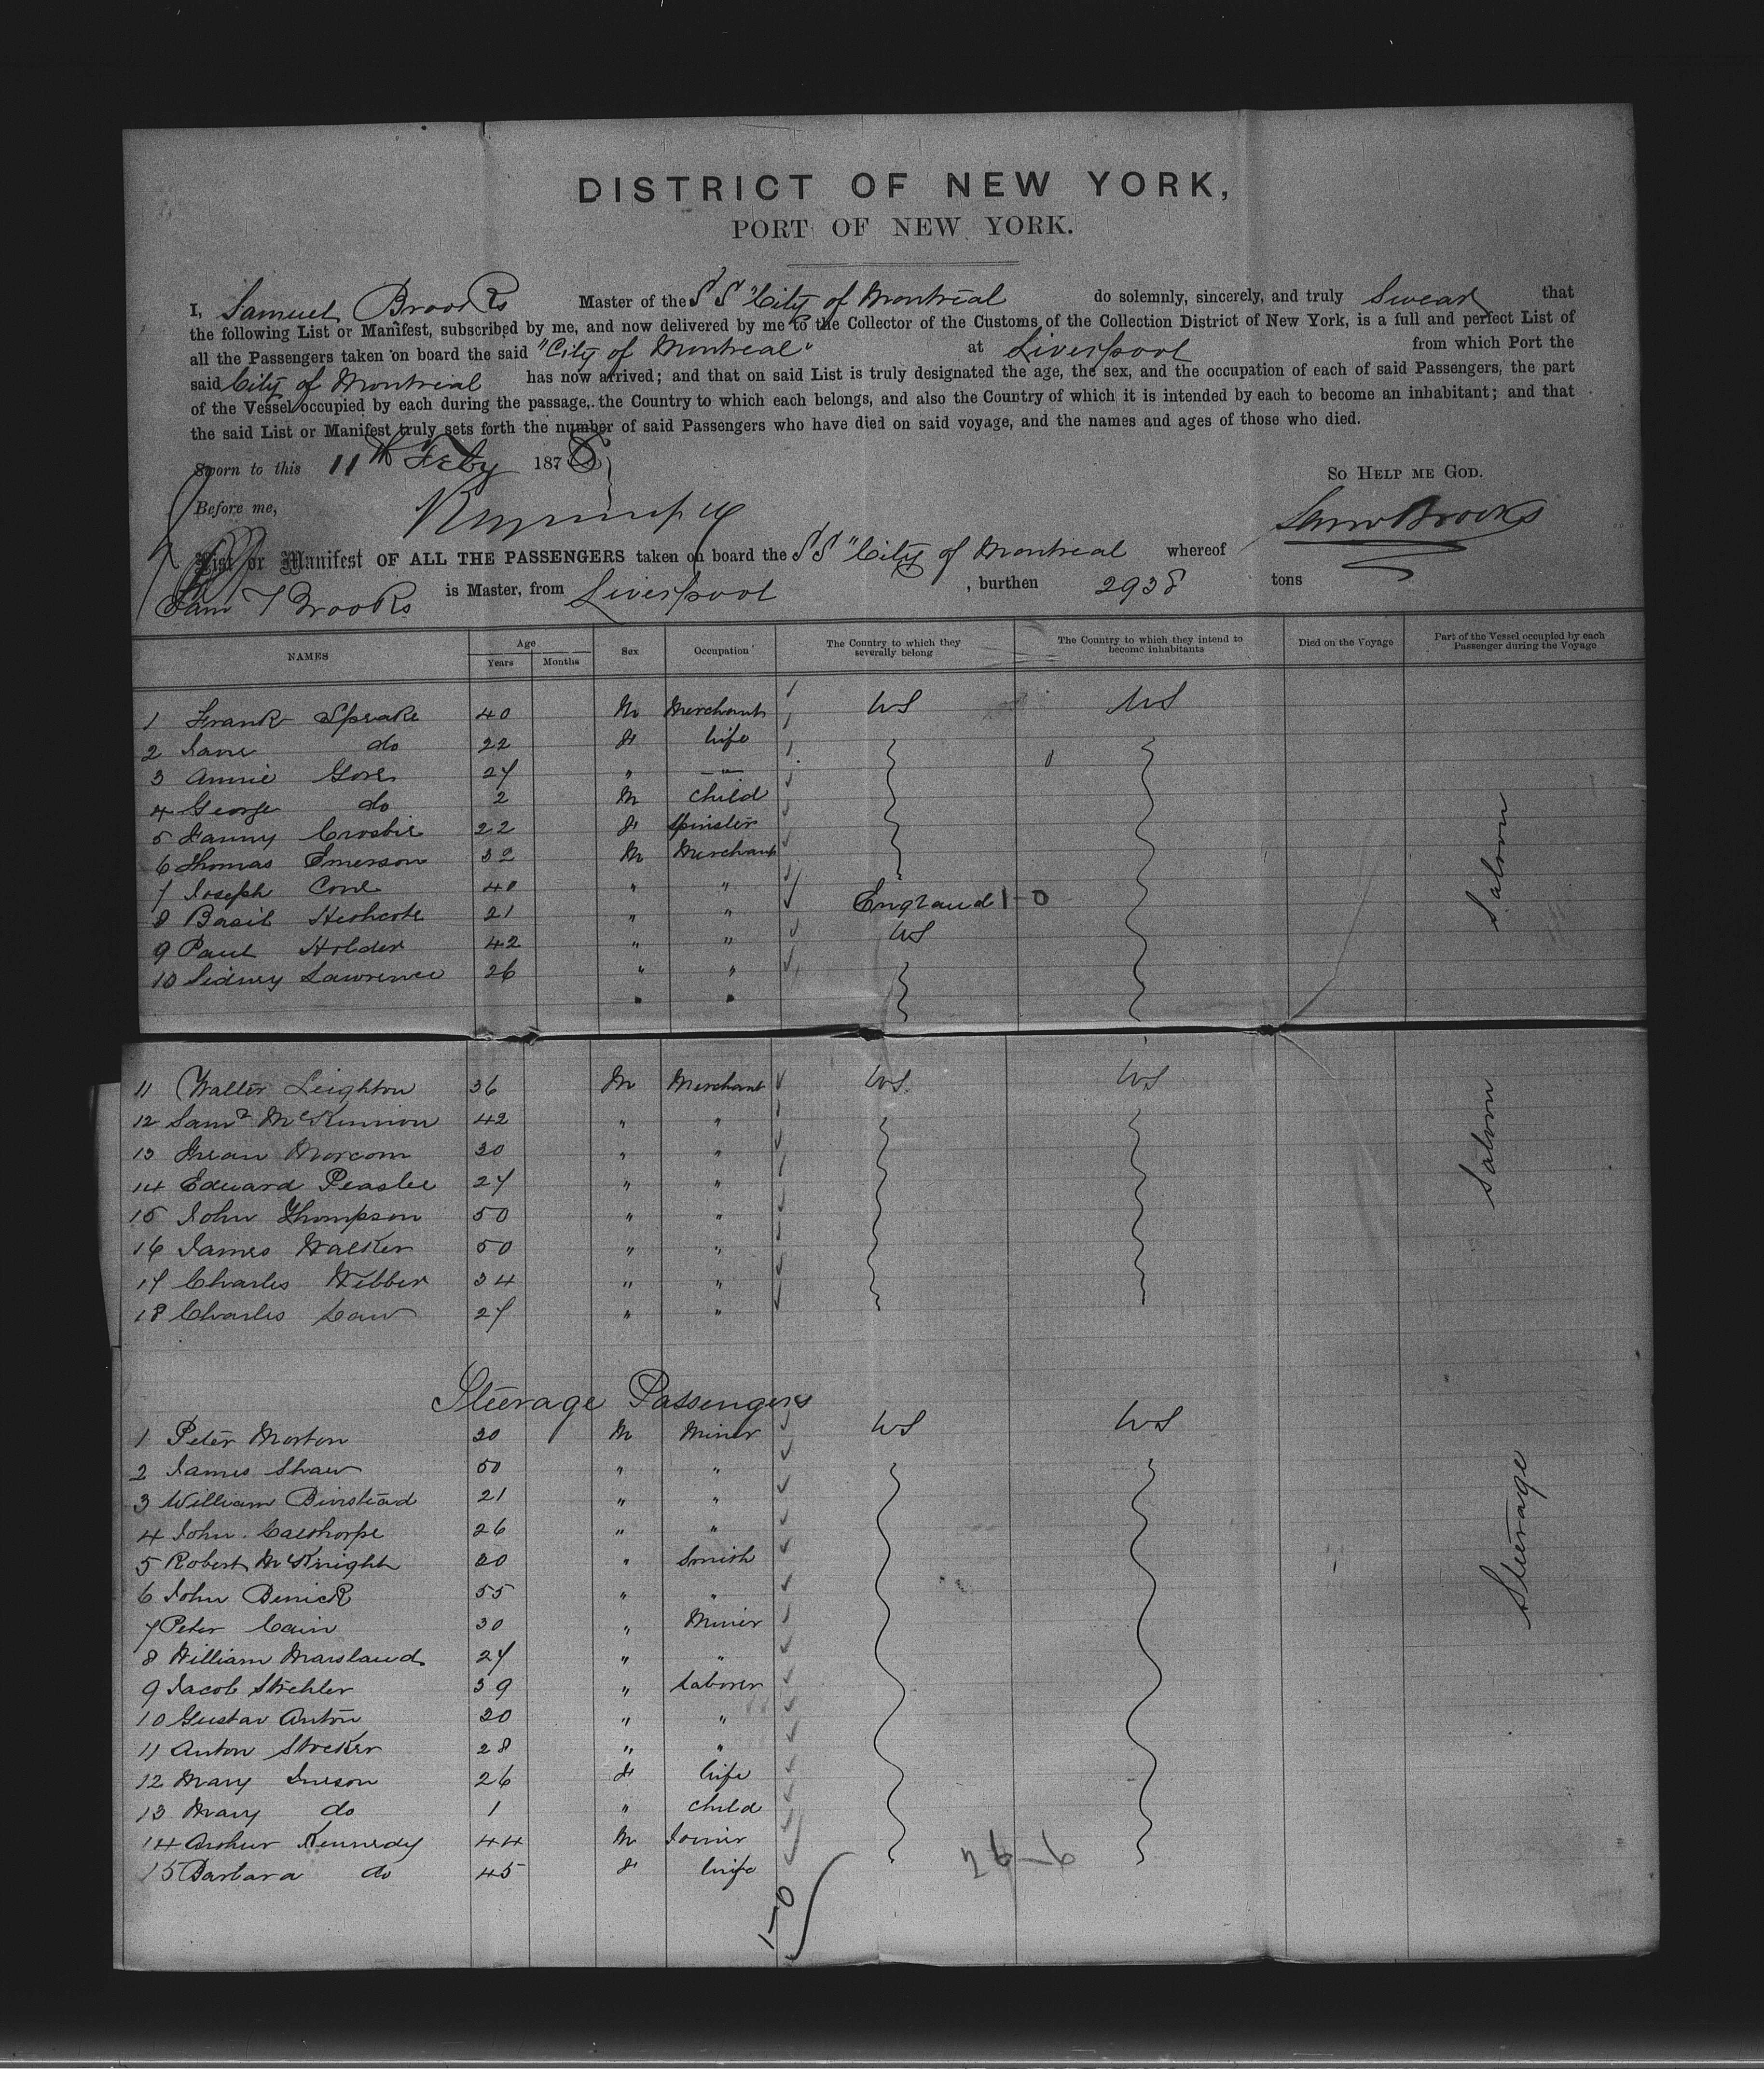 DISTRICT OF NEW YORK,
PORT OF NEW YORK.
I, Samuel Brooks Master of the SS "City of Montreal do solemnly, sincerely, and truly Swear that
the following List or Manifest, subscribed by me, and now delivered by me to the Collector of the Customs of the Collection District of New York, is a full and perfect List of
all the Passengers taken on board the said "City of Montreal" at Liverpool from which Port the
said City of Montreal has now arrived; and that on said List is truly designated the age, the sex, and the occupation of each of said Passengers, the part
of the Vessel occupied by each during the passage, the Country to which each belongs, and also the Country of which it is intended by each to become an inhabitant; and that
the said List or Manifest truly sets forth the number of said Passengers who have died on said voyage, and the names and ages of those who died.
Sworn to this 11th Feby 1878 So Help me God.
Before me, Sam Brooks
List or Manifest OF ALL THE PASSENGERS taken on board the SS "City of Montreal whereof
Sam T Brooks is Master, from Liverpool , burthen 2938 tons
NAMES Age Years Months Sex Occupation The Country to which they severally belong The Country to which they intend to become inhabitants Died on the Voyage Part of the Vessel occupied by each Passenger during the Voyage
1 Frank Speake 40 M Merchant US US
2 Jane do 22 F Wife
3 Annie Gore 27 " — " —
4 George do 2 M Child
5 Fanny Crosbie 22 F Spinster
6 Thomas Emerson 32 M Merchant
7 Joseph Cone 40 " "
8 Basil Heathcote 21 " " England 1-0
9 Paul Holder 42 " " US
10 Sidney Lawrence 26 " "
" "
Saloon
11 Walter Leighton 36 M Merchant US US
12 Saml McKinnion 42 " "
13 Morcom 30 " "
14 Edward Peaslee 27 " "
15 John Thompson 50 " "
16 James Walker 50 " "
17 Charles Webber 34 " "
18 Charles Law 27 " "
Saloon
Steerage Passengers
1 Peter Morton 30 M Miner US US
2 James Shaw 50 " "
3 William Binstead 21 " "
4 John Calthorpe 26 " "
5 Robert McKnight 20 " Smith
6 John 55 " "
7 Peter Cain 30 " Miner
8 William Marsland 27 " "
9 Jacob Stehler 39 " Laborer
10 Gustav Anton 20 " "
11 Anton Stocker 28 " "
12 Mary Ineson 26 F Wife
13 Mary do 1 " Child
14 Arthur Kennedy 44 M Joiner
15 Barbara do 45 F Wife
Steerage
26-6
1-0